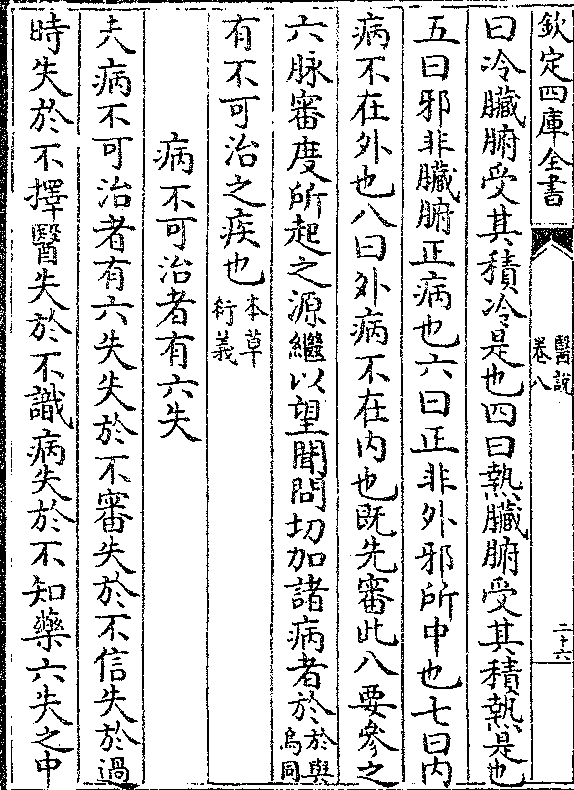 欽定四庫全書
醫説
卷八
二十六
曰冷臟腑受其積冷是也四曰熱臟腑受其積熱是也
五曰邪非臟腑正病也六曰正非外邪所中也七曰内
病不在外也八曰外病不在内也既先審此八要參之
六脉審度所起之源繼以望聞問切加諸病者於於與烏同
有不可治之疾也本草衍義
病不可治者有六失
夫病不可治者有六失失於不審失於不信失於過
時失於不擇醫失於不識病失於不知藥六失之中